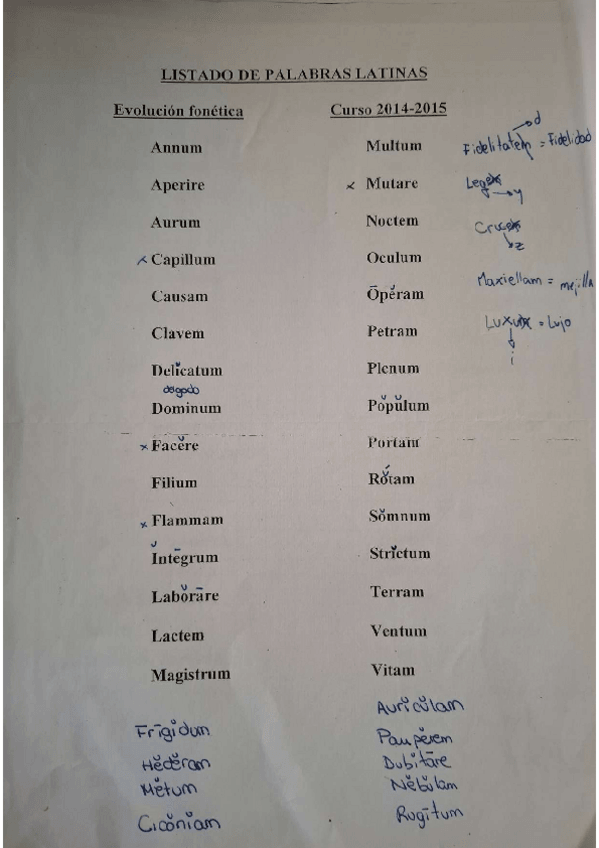 LISTADO DE PALABRAS LATINAS
Evolución fonética
Annum
Aperire
Aurum
x Capillum
Causam
Clavem
Delĭcatum
delgado
Dominum
x Facĕre
Filium
x Flammam
Ĭntēgrum
Labŏrāre
Lactem
Magistrum
Frīgĭdum
Hĕdĕram
Mĕtum
Cicŏnĭam
Curso 2014-2015
Multum
x Mutare
Noctem
Oculum
Ōpĕram
Petram
Plenum
Pŏpŭlum
Portam
Rŏtam
Sŏmnum
Strĭctum
Terram
Ventum
Vitam
Aurĭcŭlam
Paupĕrem
Dubĭtāre
Nĕbŭlam
Rugītum
d
Fidelitatem = Fidelidad
Legem
y
Crucem
z
Maxiellam = mejilla
Luxum = Lujo
i